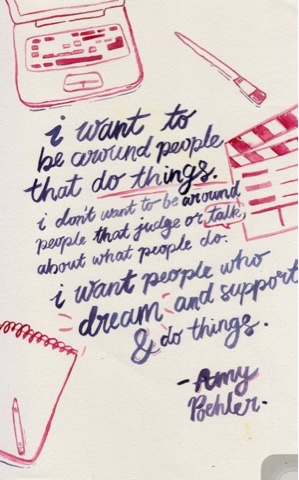 i want to
be around people
that do things.
i don't want to be around
people that judge or talk
about what people do.
i want people who
dream and support
& do things.
- Amy
Poehler.